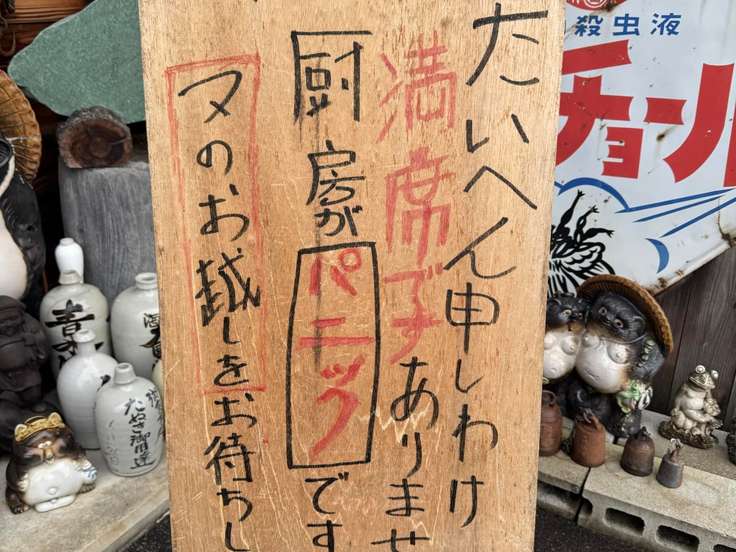 たいへん申しわけ
ありませ
満席です
厨房がパニックです
又のお越しをお待ちし
殺虫液
チョール
たぬき御用達